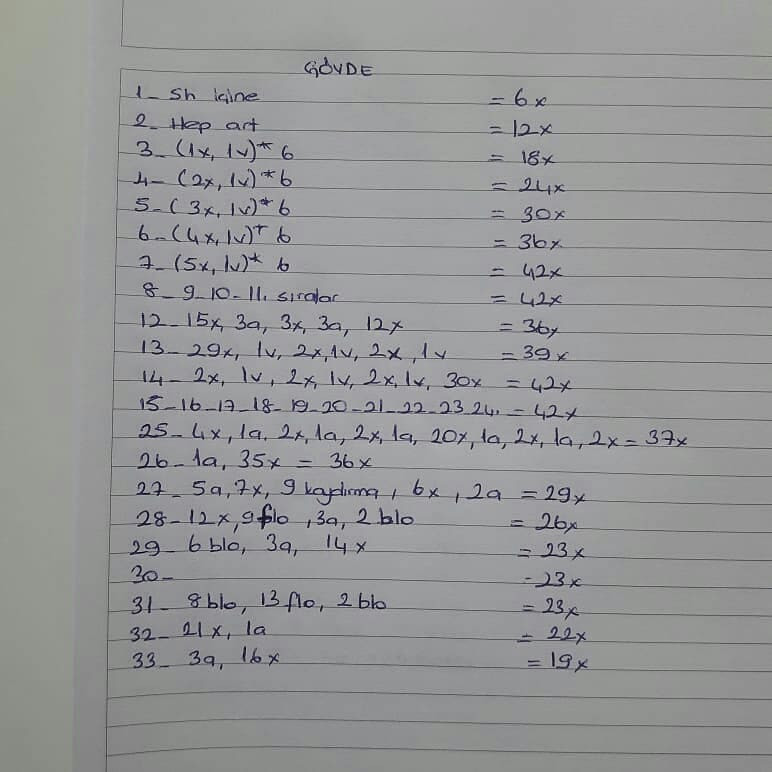 GÖVDE
1_ Sh içine = 6x
2_ Hep art = 12x
3_ (1x, 1v)* 6 = 18x
4_ (2x, 1v)* 6 = 24x
5_ (3x, 1v)* 6 = 30x
6_ (4x, 1v)* 6 = 36x
7_ (5x, 1v)* 6 = 42x
8_9_10_11. sıralar = 42x
12_ 15x, 3a, 3x, 3a, 12x = 36x
13_ 29x, 1v, 2x, 1v, 2x, 1v = 39x
14_ 2x, 1v, 2x, 1v, 2x, 1v, 30x = 42x
15_16_17_18_19_20_21_22_23_24. = 42x
25_ 4x, 1a, 2x, 1a, 2x, 1a, 20x, 1a, 2x, 1a, 2x = 37x
26_ 1a, 35x = 36x
27_ 5a, 7x, 9 kaydırma, 6x, 2a = 29x
28_ 12x, 9flo, 3a, 2 blo = 26x
29_ 6 blo, 3a, 14x = 23x
30_ -23x
31_ 8blo, 13 flo, 2 blo = 23x
32_ 21x, 1a = 22x
33_ 3a, 16x = 19x